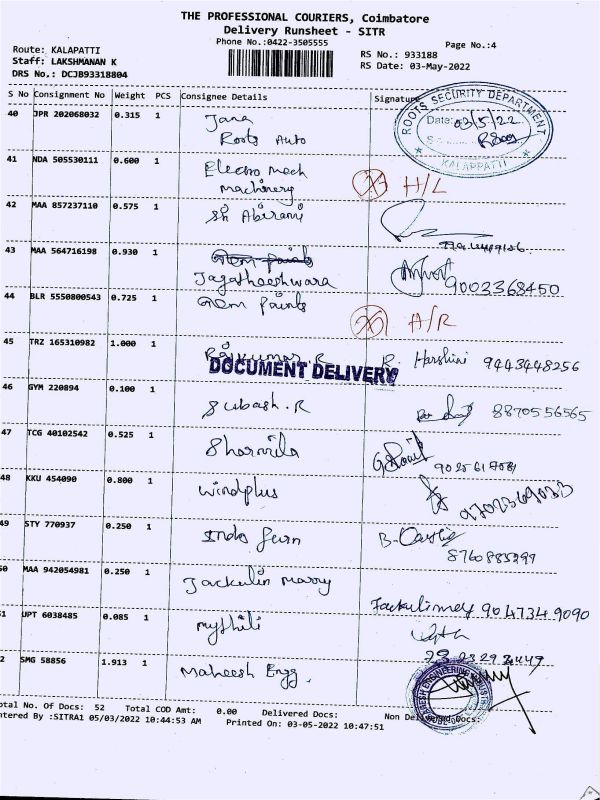 THE PROFESSIONAL COURIERS, Coimbatore
Delivery Runsheet - SITR
Phone No.:0422-3505555
Page No.:4
Route: KALAPATTI
Staff: LAKSHMANAN K
DRS No.: DCJB93318804
RS No.: 933188
RS Date: 03-May-2022
S No Consignment No Weight PCS Consignee Details Signature
ROOTS SECURITY DEPARTMENT
Date: 03/5/22
KALAPPATTI
40 JPR 202068032 0.315 1 Jana
Roots Auto
41 NDA 505530111 0.600 1 Electro Mech
Machinery H/L
42 MAA 857237110 0.575 1 Sri Abirami
43 MAA 564716198 0.930 1 Gem Paints
Jagatheeshwara 9003368450
44 BLR 5550800543 0.725 1 Gem Paints
A/R
45 TRZ 165310982 1.000 1 Rajkumar.R R. Harshini 9443448256
DOCUMENT DELIVERY
46 GYM 220894 0.100 1 Subash.R 8870556565
47 TCG 40102542 0.525 1 Sharmila
48 KKU 454090 0.800 1 Windplus
49 STY 770937 0.250 1 Indo furn
8760885299
50 MAA 942054981 0.250 1 Jackulin Marry
904734 9090
51 UPT 6038485 0.085 1 Mythili
52 SMG 58856 1.913 1 Maheesh Engg.
Total No. Of Docs: 52 Total COD Amt: 0.00 Delivered Docs: Non Delivered Docs:
Entered By :SITRA1 05/03/2022 10:44:53 AM Printed On: 03-05-2022 10:47:51